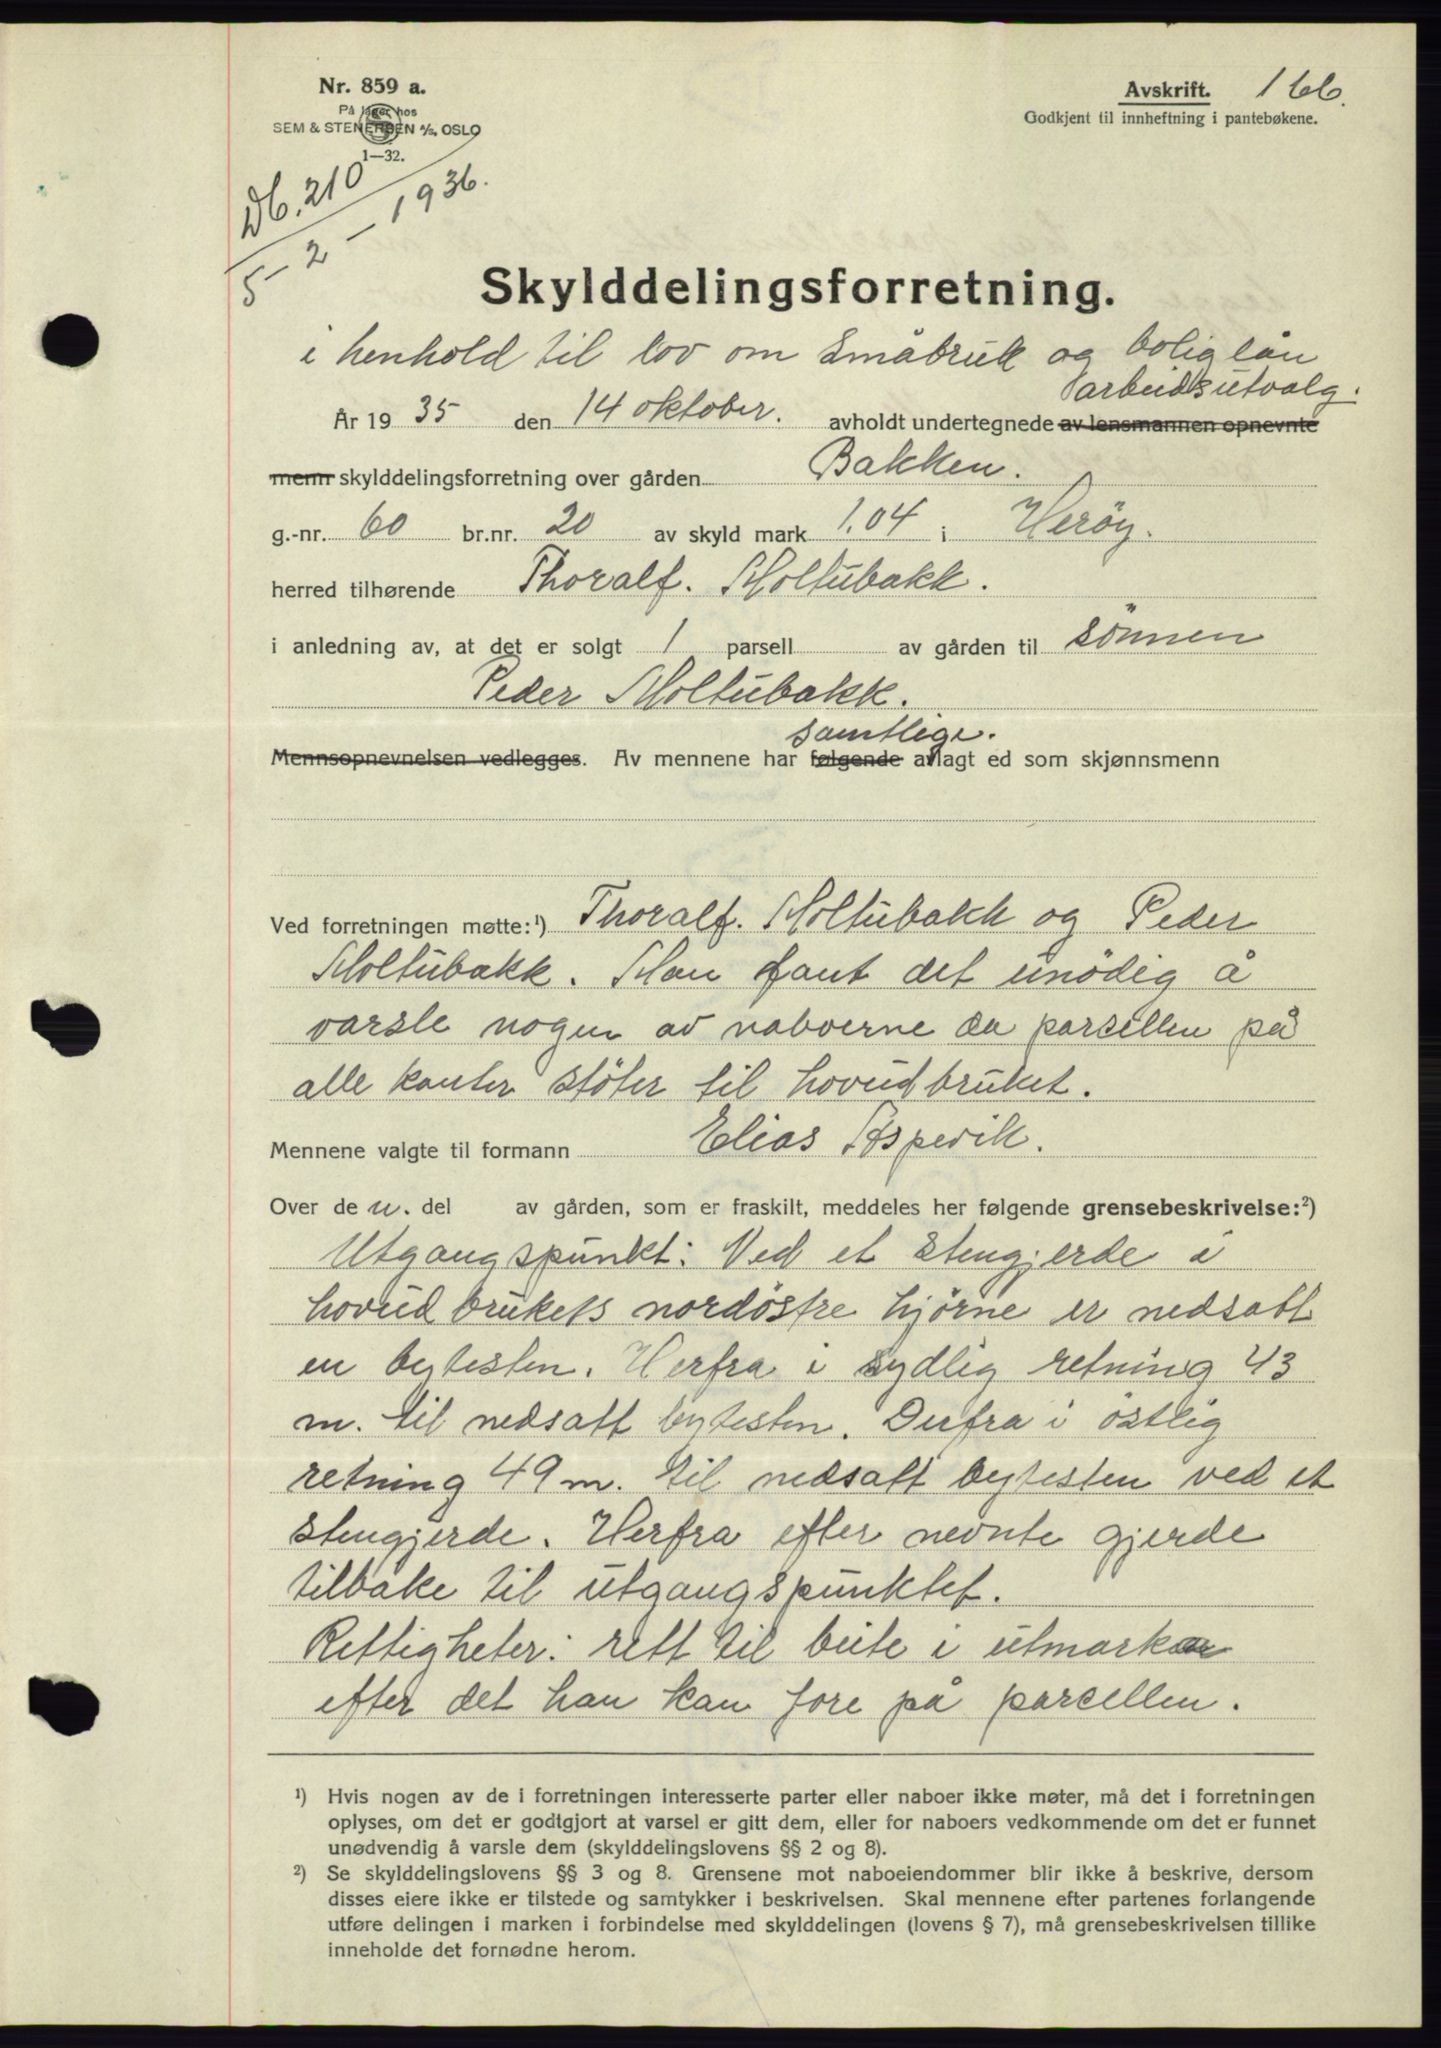 Nr. 859 a.
På lager hos
SEM & STENERSEN A/S, OSLO
1—32.
Avskrift. 166.
Godkjent til innheftning i pantebøkene.
Db. 210
5 - 2 - 1936.
Skylddelingsforretning.
i henhold til lov om småbruk og boliglån
arbeidsutvalg.
År 1935 den 14 oktober. avholdt undertegnede av lensmannen opnevnte
menn skylddelingsforretning over gården Bakken.
g.-nr. 60 br.nr. 20 av skyld mark 1,04 i Herøy.
herred tilhørende Thoralf. Moltubakk.
i anledning av, at det er solgt 1 parsell av gården til sönnen
Peder Moltubakk.
samtlige.
Mennsopnevnelsen vedlegges. Av mennene har følgende avlagt ed som skjønnsmenn
Ved forretningen møtte:¹) Thoralf. Moltubakk og Peder
Moltubakk. Man fant det unödig å
varsle nogen av naboerne da parcellen på
alle kanter stöter til hovudbruket.
Mennene valgte til formann Elias Aspevik.
Over de n. del av gården, som er fraskilt, meddeles her følgende grensebeskrivelse:²)
Utgangspunkt: Ved et stengjerde i
hovudbrukets nordöstre hjörne er nedsatt
en bytesten. Herfra i sydlig retning 43
m. til nedsatt bytesten. Derfra i östlig
retning 49 m. til nedsatt bytesten ved et
stengjerde. Herfra efter nevnte gjerde
tilbake til utgangspunktet.
Rettigheter: rett til beite i utmarken
efter det han kan fore på parcellen.
¹) Hvis nogen av de i forretningen interesserte parter eller naboer ikke møter, må det i forretningen
oplyses, om det er godtgjort at varsel er gitt dem, eller for naboers vedkommende om det er funnet
unødvendig å varsle dem (skylddelingslovens §§ 2 og 8).
²) Se skylddelingslovens §§ 3 og 8. Grensene mot naboeiendommer blir ikke å beskrive, dersom
disses eiere ikke er tilstede og samtykker i beskrivelsen. Skal mennene efter partenes forlangende
utføre delingen i marken i forbindelse med skylddelingen (lovens § 7), må grensebeskrivelsen tillike
inneholde det fornødne herom.